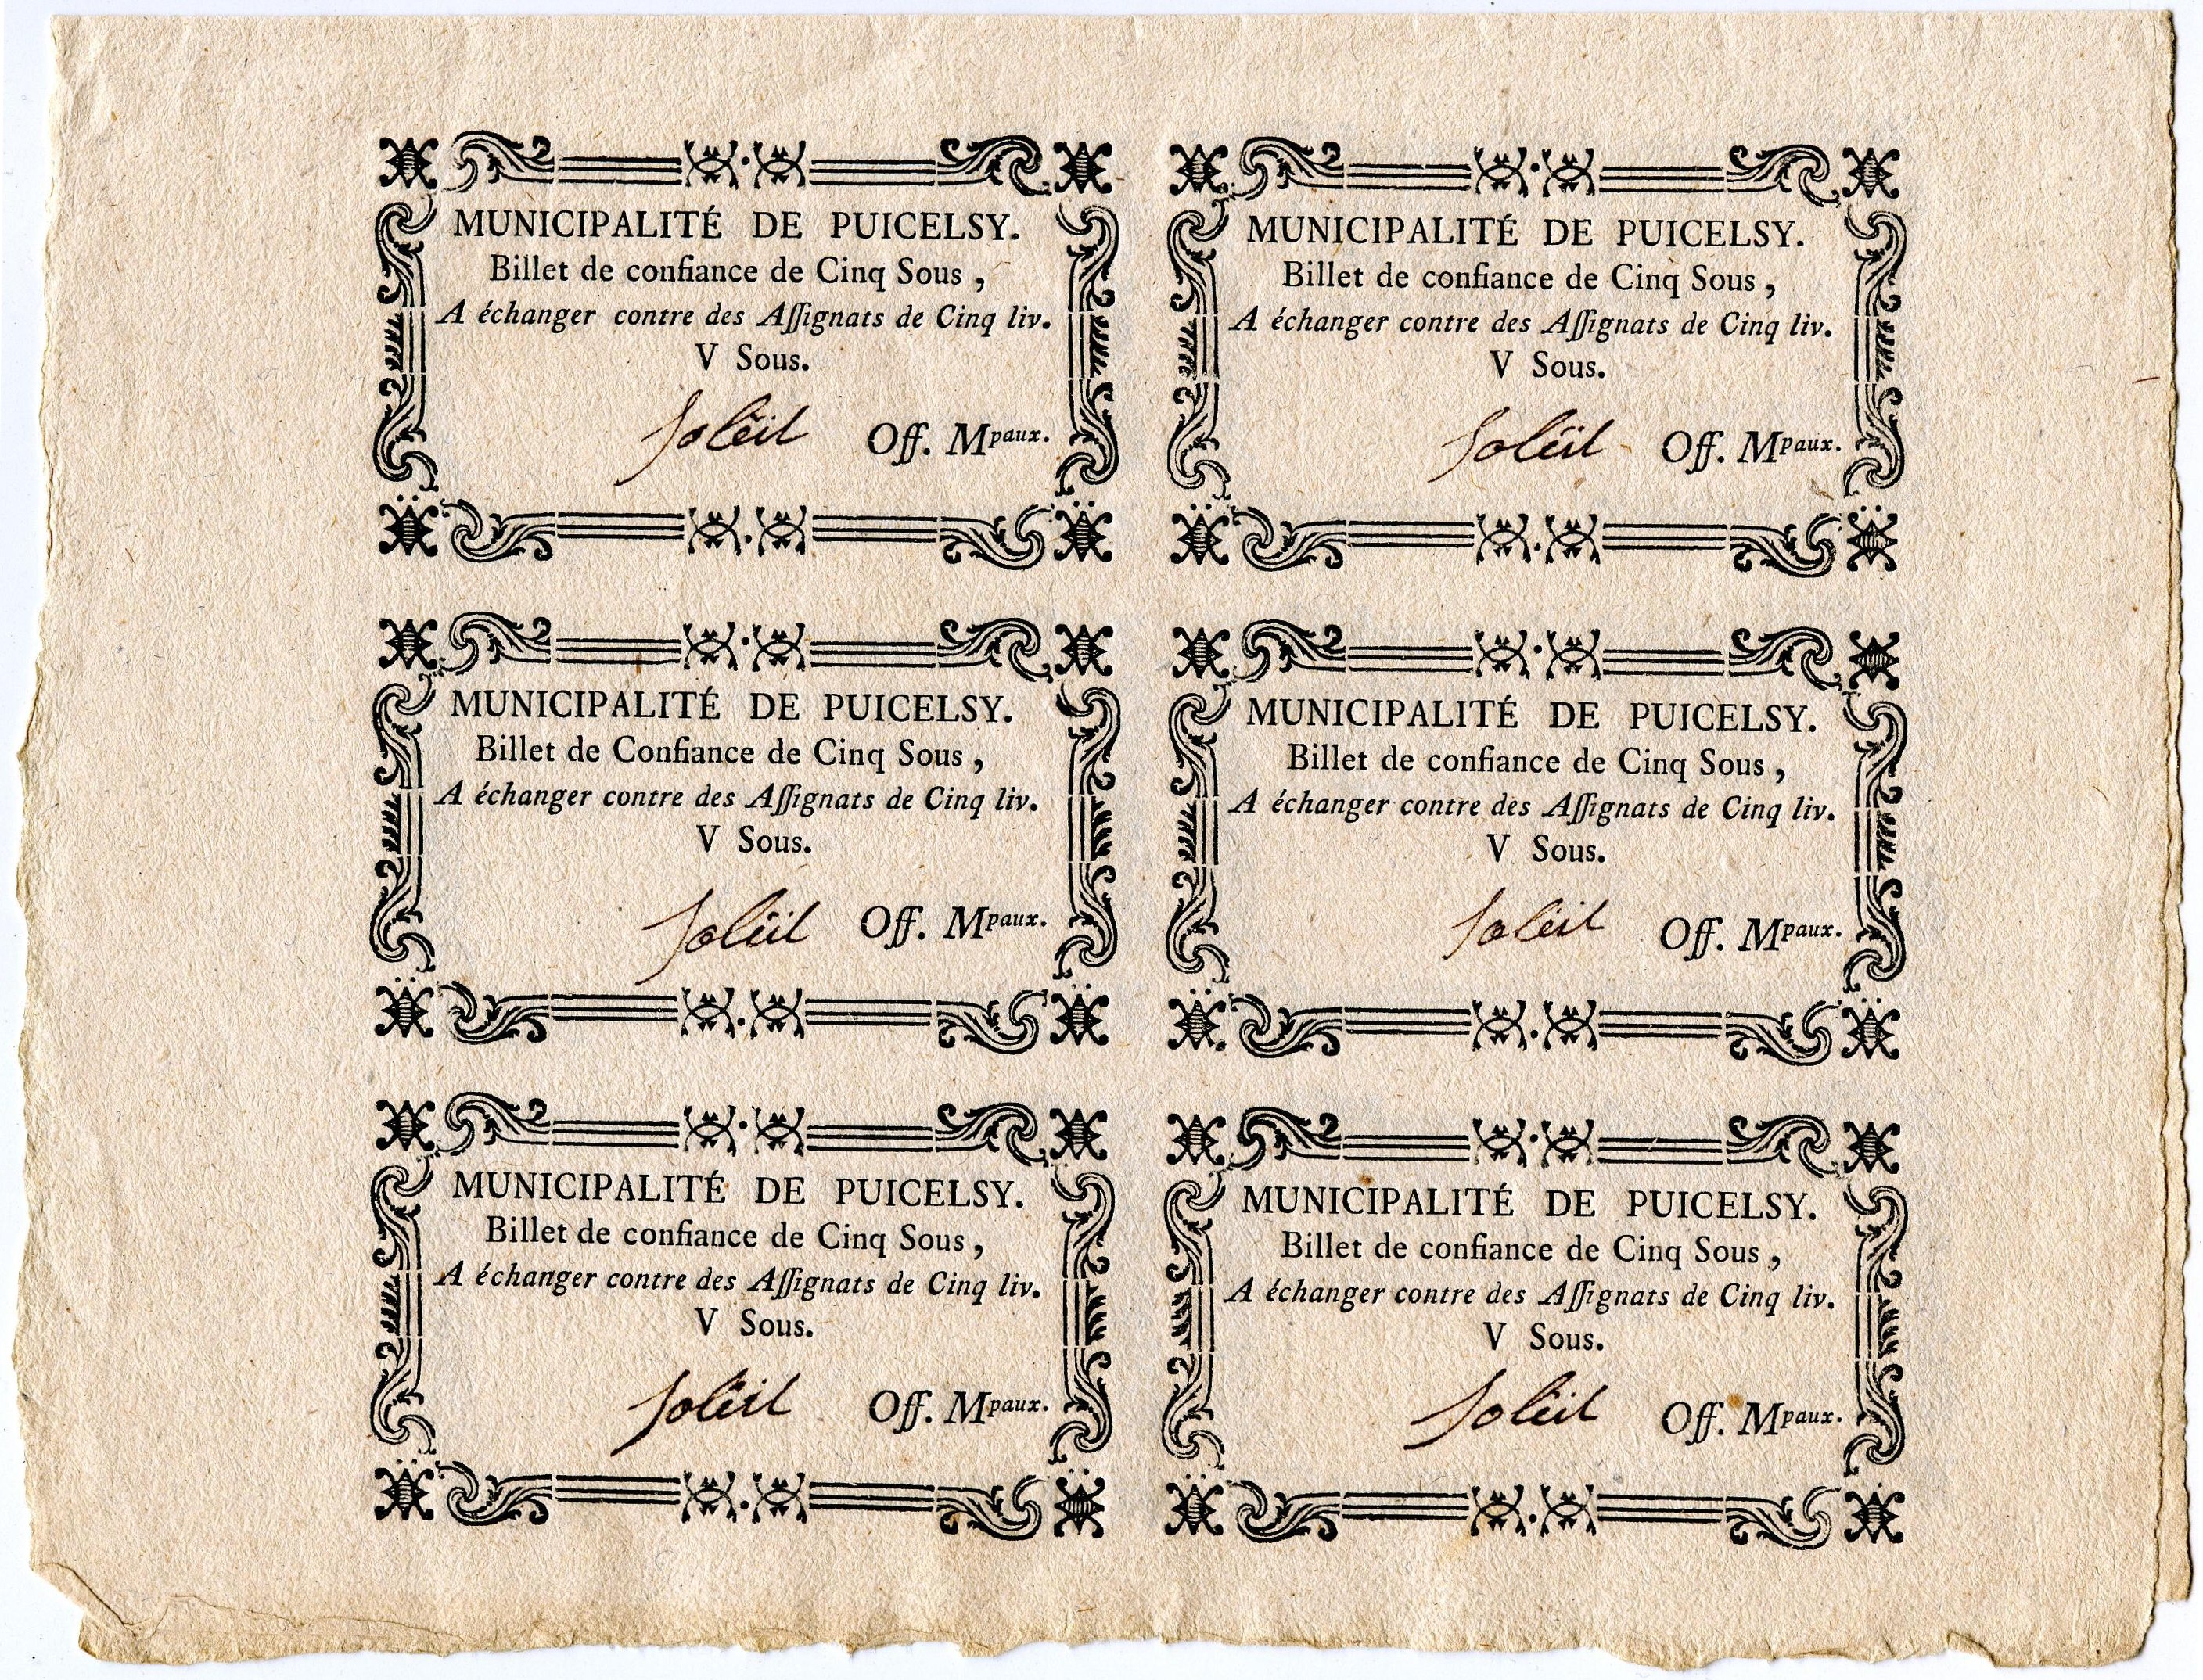 MUNICIPALITÉ DE PUICELSY.
Billet de confiance de Cinq Sous,
A échanger contre des Aſſignats de Cinq liv.
V Sous.
Soleil Off. Mpaux.
MUNICIPALITÉ DE PUICELSY.
Billet de confiance de Cinq Sous,
A échanger contre des Aſſignats de Cinq liv.
V Sous.
Soleil Off. Mpaux.
MUNICIPALITÉ DE PUICELSY.
Billet de Confiance de Cinq Sous,
A échanger contre des Aſſignats de Cinq liv.
V Sous.
Soleil Off. Mpaux.
MUNICIPALITÉ DE PUICELSY.
Billet de confiance de Cinq Sous,
A échanger contre des Aſſignats de Cinq liv.
V Sous.
Soleil Off. Mpaux.
MUNICIPALITÉ DE PUICELSY.
Billet de confiance de Cinq Sous,
A échanger contre des Aſſignats de Cinq liv.
V Sous.
Soleil Off. Mpaux.
MUNICIPALITÉ DE PUICELSY.
Billet de confiance de Cinq Sous,
A échanger contre des Aſſignats de Cinq liv.
V Sous.
Soleil Off. Mpaux.